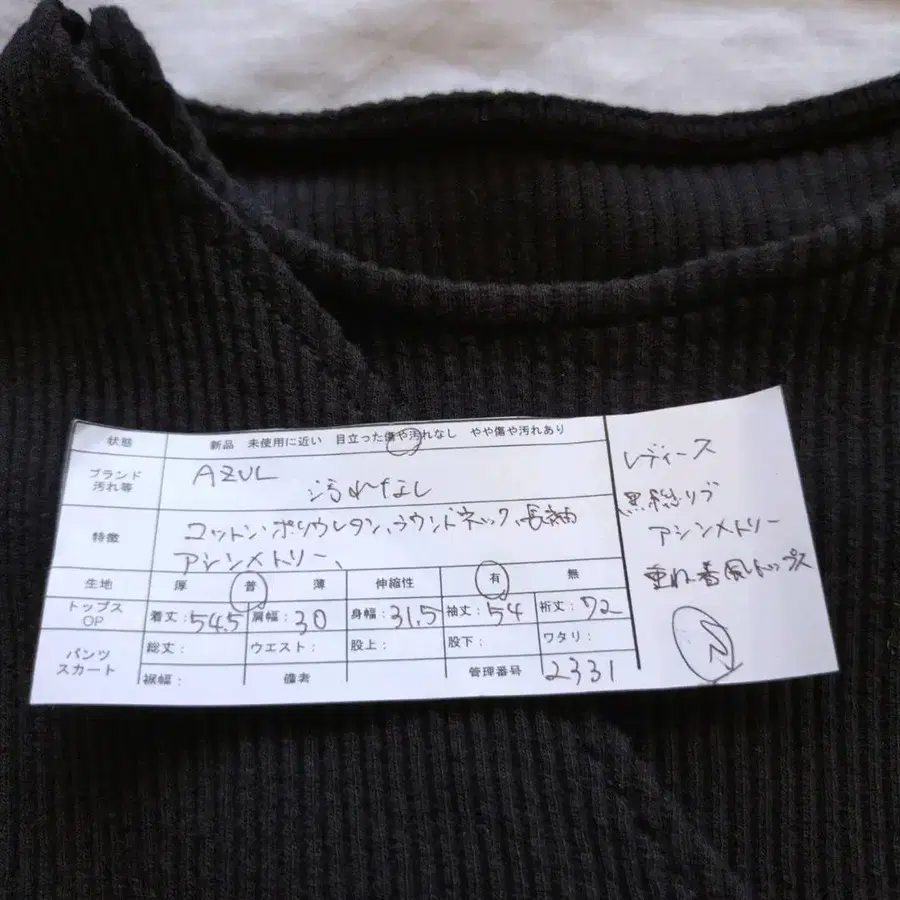 状態 新品 未使用に近い 目立った傷や汚れなし やや傷や汚れあり
ブランド 汚れ等 AZUL 汚れなし
特徴 コットン・ポリウレタン、ラウンドネック、長袖
アシンメトリー、
生地 厚 普 薄 伸縮性 有 無
トップス OP 着丈:54.5 肩幅:30 身幅:31.5 袖丈:54 裄丈:72
パンツ スカート 総丈: ウエスト: 股上: 股下: ワタリ:
裾幅: 備考 管理番号 2331
レディース
黒総リブ
アシンメトリー
重ね着風トップス